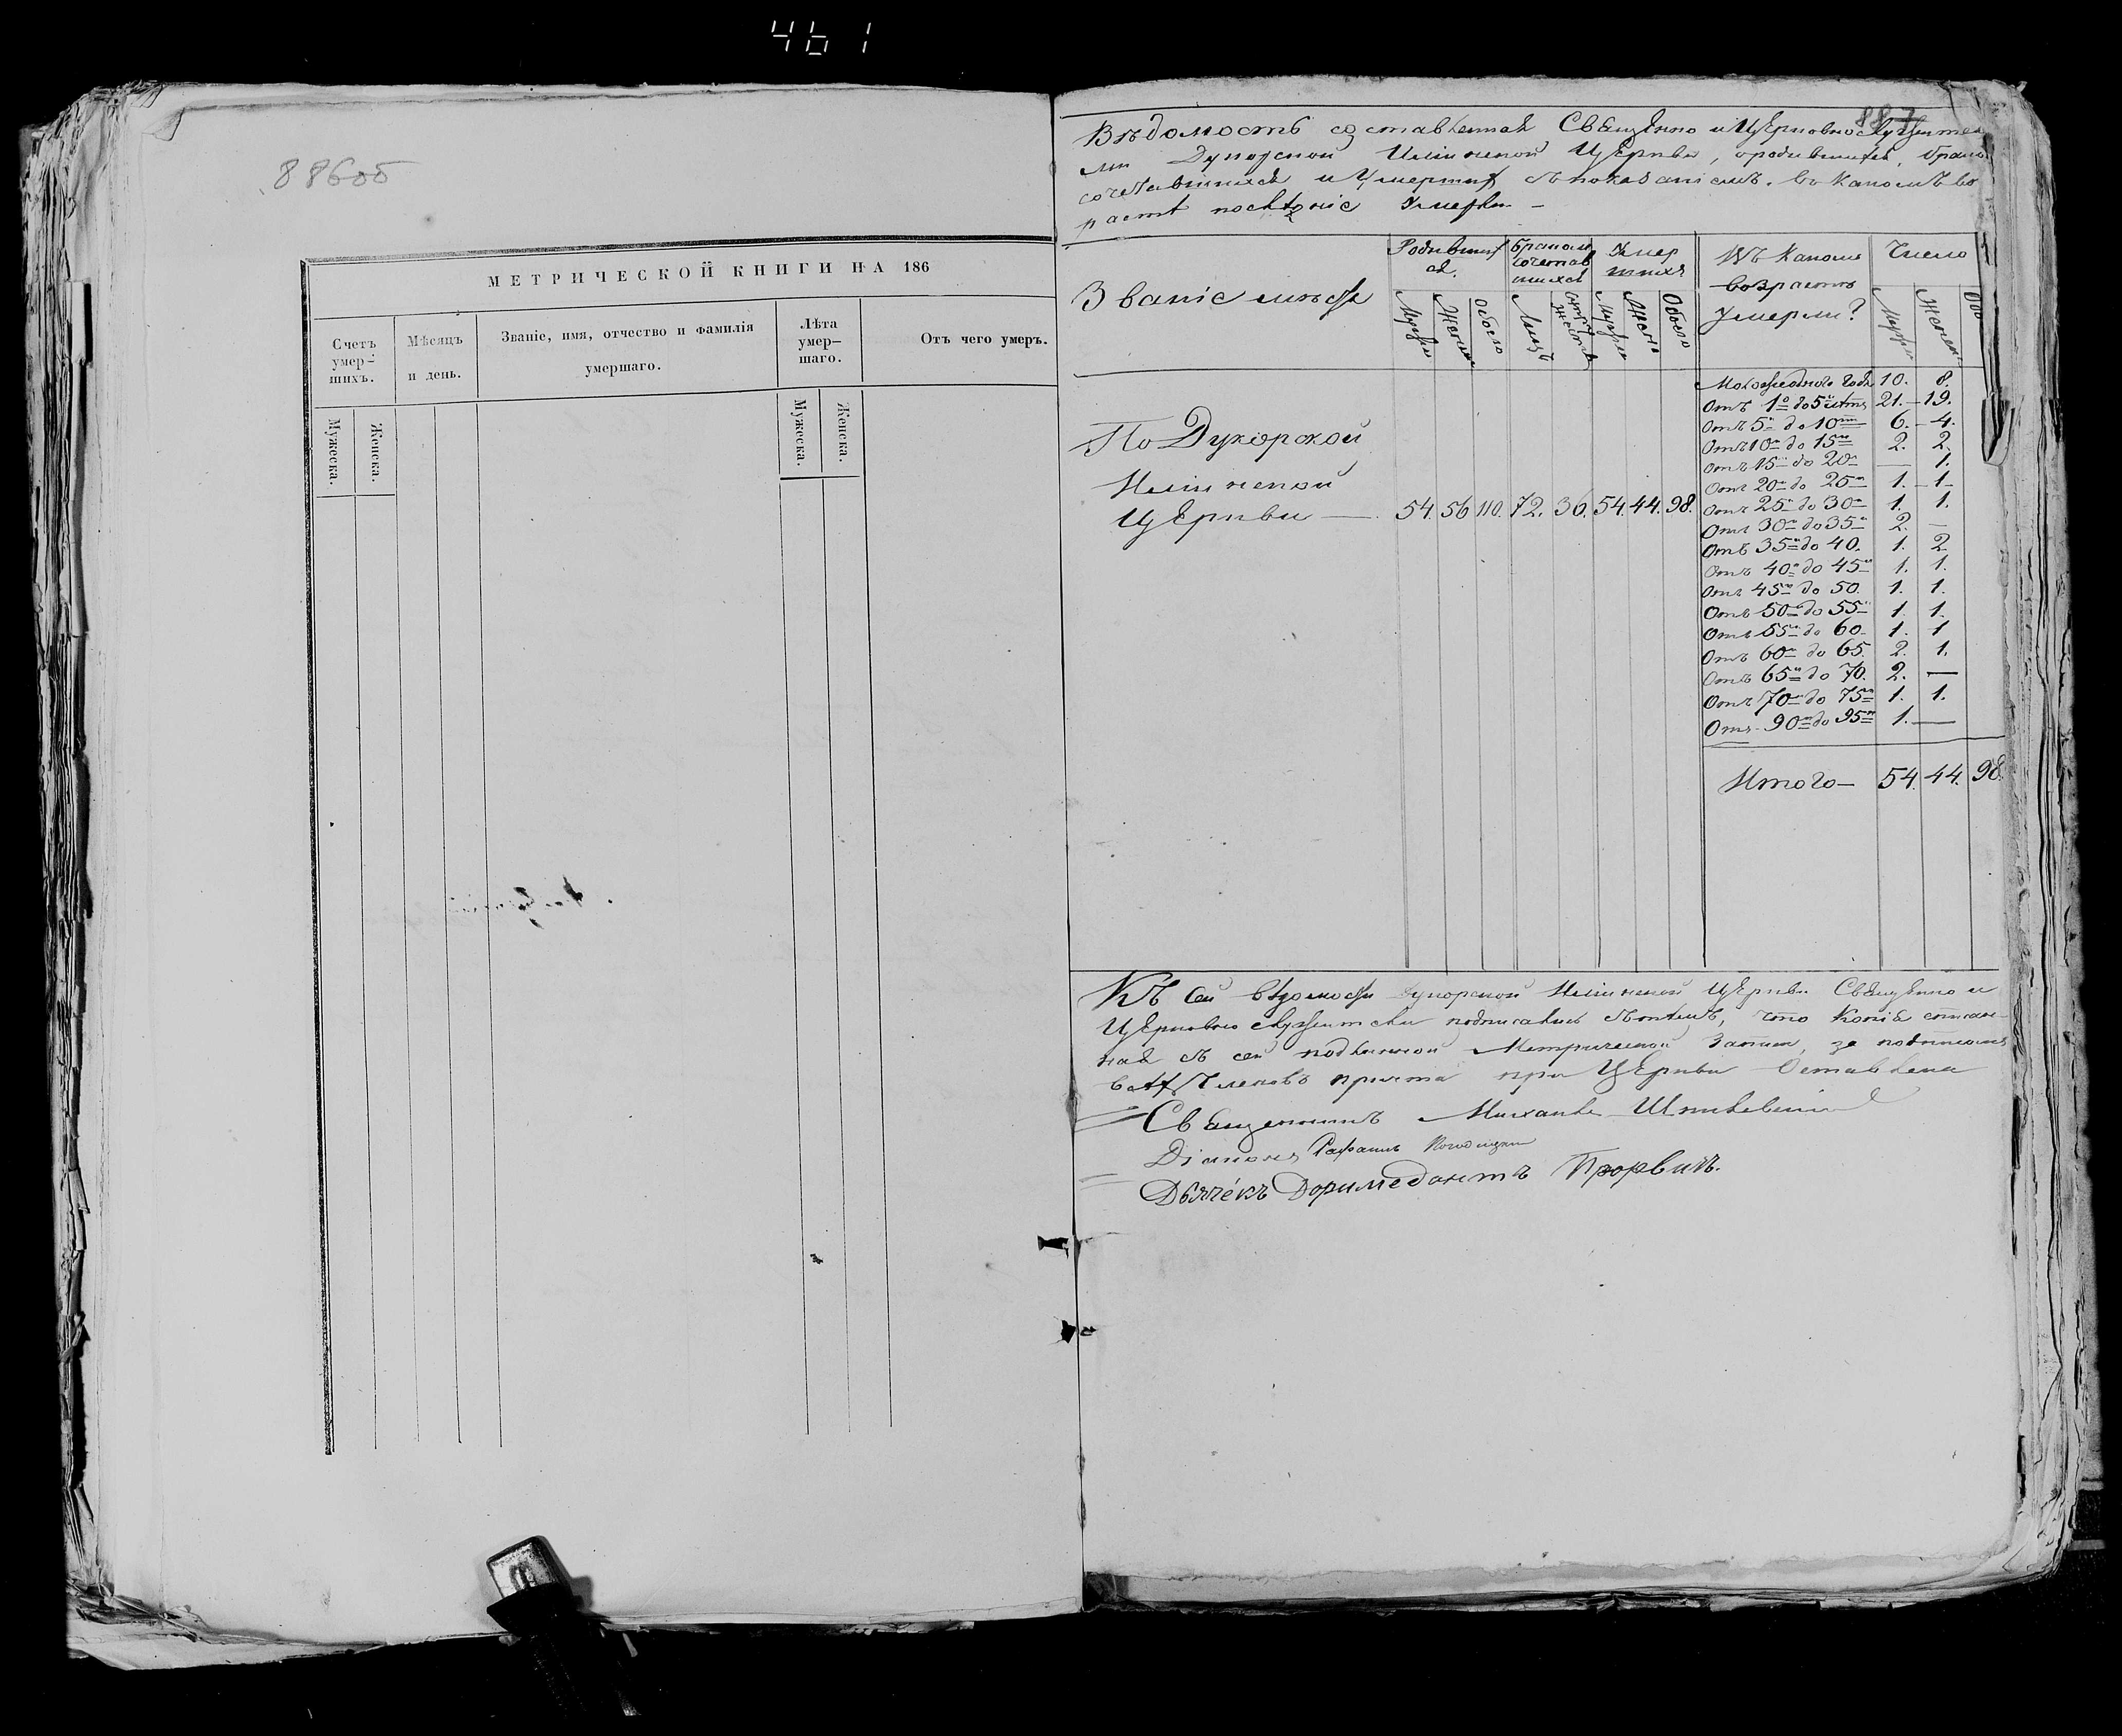 461
886об
МЕТРИЧЕСКОЙ КНИГИ НА 186
Счетъ умер-шихъ.
Мѣсяцъ и день.
Званіе, имя, отчество и фамилія умершаго.
Лѣта умер-шаго.
Отъ чего умеръ.
Мужеска.
Женска.
Мужеска.
Женска.
887
Вѣдомость составленная Священно и Церковнослужителя
ми Дукорской Ильинской Церкви, о родившихся, брако
сочетавшихся и Умершихъ съ показаніемъ, въ какомъ во
растѣ послѣдніе Умерли —
Званіе мѣста
Родившихся.
Бракомъ сочетавшихся
Умершихъ
Въ какомъ возрастѣ Умерли?
Число
Мужск
Женск
Обоего
Лицъ
Супружествъ
Мужск
Женск
Обоего
Мужск
Женск
Обо
По Дукорской
Ильинской
Церкви — 54. 56 110. 72. 36. 54. 44. 98.
Моложе одного года 10. 8.
Отъ 1го до 5и лѣтъ 21. — 19.
Отъ 5и до 10ти 6. — 4.
Отъ 10и до 15ти 2. 2.
Отъ 15и до 20и — 1.
Отъ 20и до 25и 1. — 1.
Отъ 25и до 30и 1. 1.
Отъ 30и до 35и 2. —
Отъ 35и до 40. 1. 2.
Отъ 40и до 45и 1. 1.
Отъ 45и до 50. 1. 1.
Отъ 50и до 55и 1. 1.
Отъ 55и до 60. 1. 1
Отъ 60и до 65. 2. 1.
Отъ 65и до 70. 2. —
Отъ 70и до 75и 1. 1.
Отъ 90и до 95и 1. —
Итого — 54. 44. 98.
Къ сей вѣдомости Дукорской Ильинской Церкви Священно и
Церковно служители подписались въ томъ, что Копія списан-
ная съ сей подлинной Метрической Записи, за подписомъ
всѣхъ Членовъ причта при Церкви Оставлена
Священникъ Михаилъ
Діаконъ Рафаилъ
Дьячéкъ Доримедонтъ Прорвичъ.